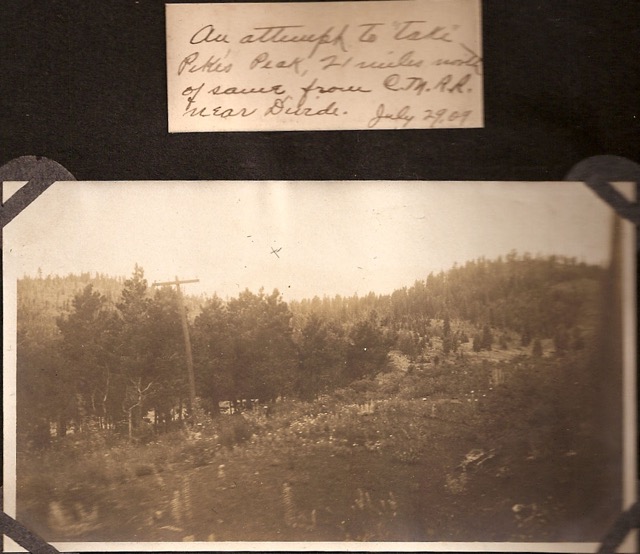 An attempt to "take"
Pike's Peak, 21 miles north
of same from C.M.R.R.
near Divide. July 29.09